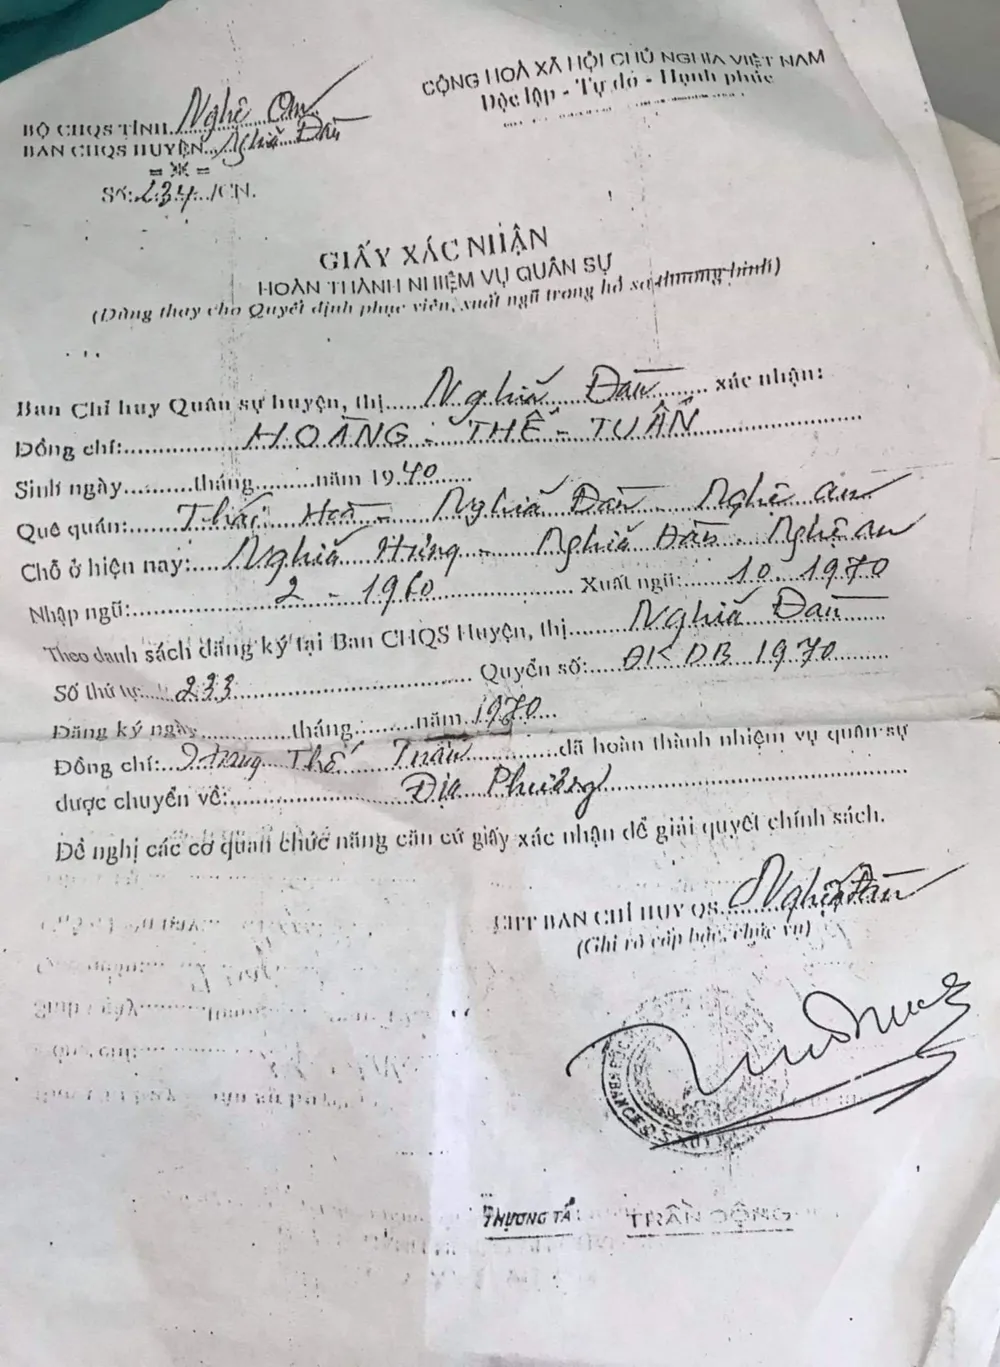 CỘNG HOÀ XÃ HỘI CHỦ NGHĨA VIỆT NAM
Độc lập - Tự do - Hạnh phúc
BỘ CHQS TỈNH Nghệ An
BAN CHQS HUYỆN Nghĩa Đàn
Số: 234 /CN.
GIẤY XÁC NHẬN
HOÀN THÀNH NHIỆM VỤ QUÂN SỰ
(Dùng thay cho Quyết định phục viên, xuất ngũ trong hồ sơ thương binh)
Ban Chỉ huy Quân sự huyện, thị Nghĩa Đàn xác nhận:
Đồng chí: HOÀNG - THẾ - TUẤN
Sinh ngày.........tháng.........năm 1940
Quê quán: Thái Hoà - Nghĩa Đàn - Nghệ an
Chỗ ở hiện nay: Nghĩa Hưng - Nghĩa Đàn - Nghệ an
Nhập ngũ: 2 - 1960 Xuất ngũ: 10. 1970
Theo danh sách đăng ký tại Ban CHQS Huyện, thị Nghĩa Đàn
Số thứ tự: 233 Quyển số: ĐK DB 1970
Đăng ký ngày.........tháng.........năm 1970
Đồng chí: Hoàng Thế Tuấn đã hoàn thành nhiệm vụ quân sự
được chuyển về: Địa Phương
Đề nghị các cơ quan chức năng căn cứ giấy xác nhận để giải quyết chính sách.
CHT BAN CHỈ HUY QS Nghĩa Đàn
(Ghi rõ cấp bậc, chức vụ)
THƯỢNG TÁ: TRẦN